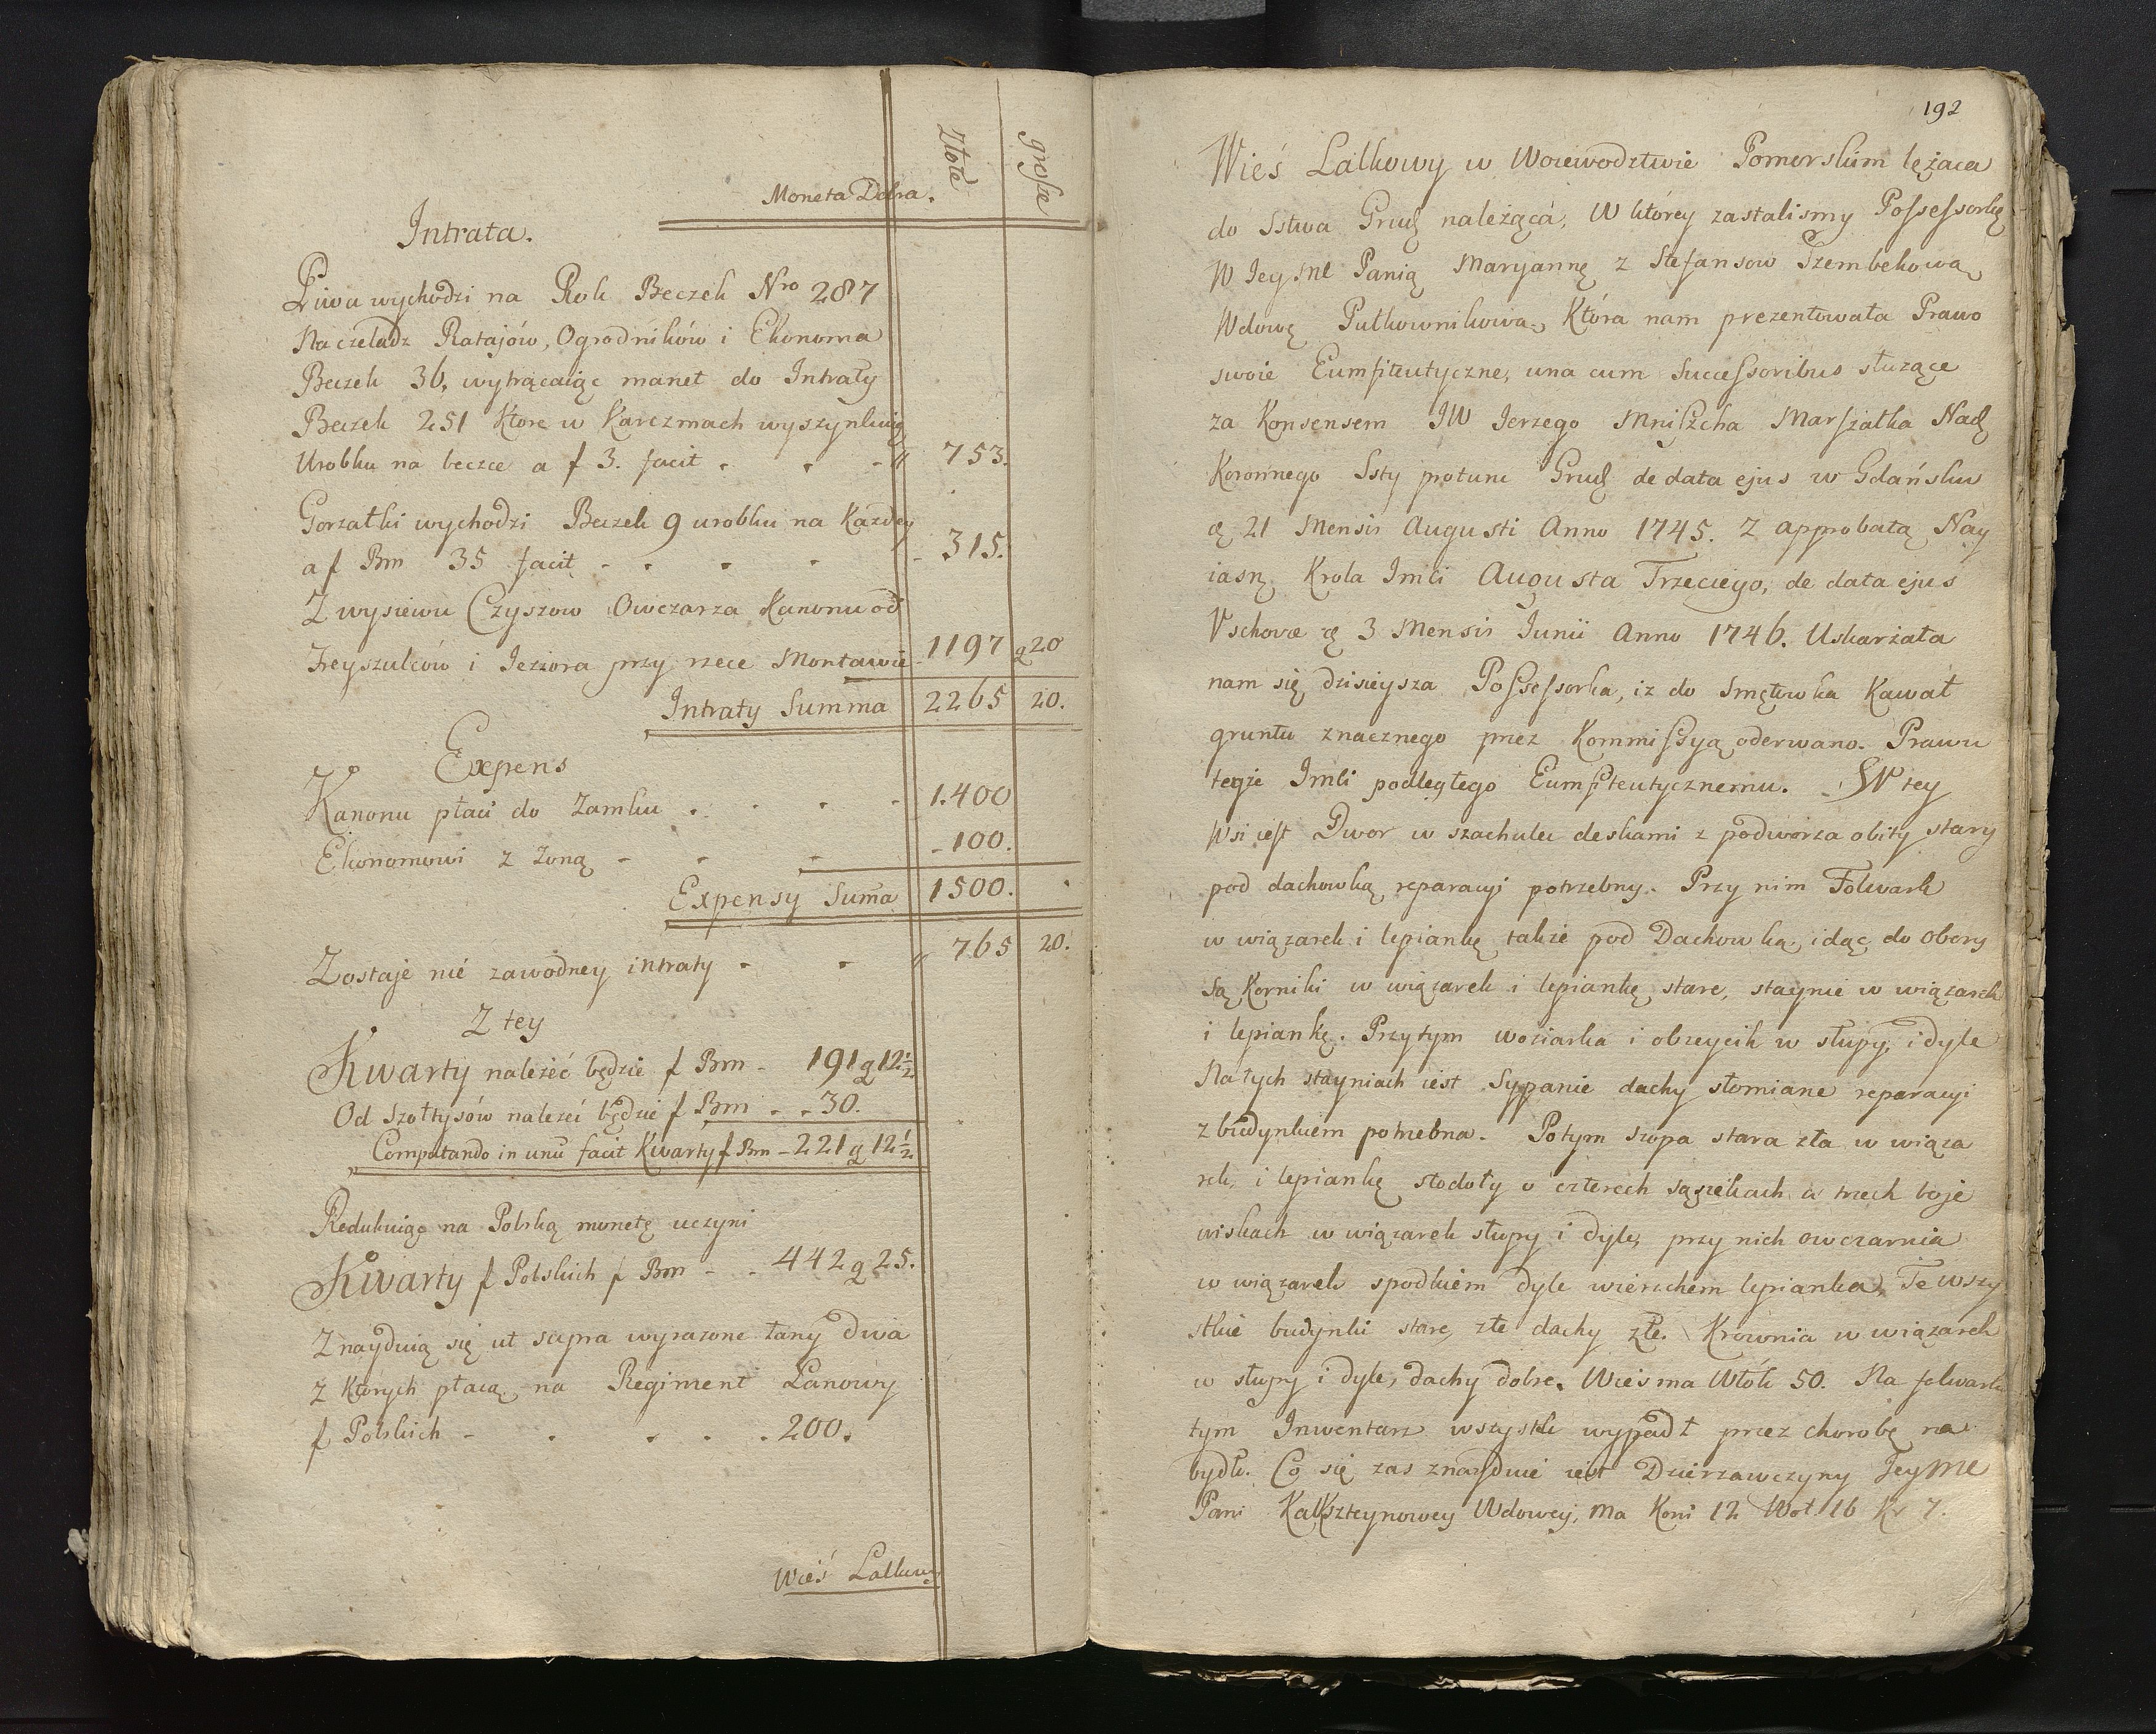 Złote
grosze
Moneta Dobra.
Intrata.
Piwa wychodzi na Rok Beczek Nro 287
Na czeladz Ratajów, Ogrodników i Ekonoma
Beczek 36, wytrącaiąc manet do Intraty
Beczek 251 Które w Karczmach wyszynkuią
Urobku na beczce a f 3. facit . . - " 753.
Gorzałki wychodzi Beczek 9 urobku na Każdey
a f Brn 35 facit - . . . - 315.
Z wysiewu Czyszow Owczarza Kanonu od
Freyszulców i Jeziora przy rzece Montawie - 1197 g 20
Intraty Summa 2265 20.
Expens
Kanonu płaci do Zamku . . . - 1.400
Ekonomowi z Zoną - - - - 100.
Expensy Suma 1500.
Zostaje nié zawodney intraty - - " 765 20.
Z tey
Kwarty należéć będzie f Brn - 191 g 12½
Od Szołtysów należéć będzie f Brn - - 30.
Computando in unū facit Kwarty f Brn - 221 g 12½
Redukuiąc na Polską monetę uczyni
Kwarty f Polskich f Brn - - 442 g 25.
Znayduią się ut supra wyrazone łany dwa
z Których płacą na Regiment Łanowy
f Polskich - . . . . 200.
Wieś Lalkowy
192
Wieś Lalkowy w Woiewodztwie Pomorskim leżąca
do Sstwa Grudz należąca, W którey zastalismy Possessorkę
W Jeysme Panią Maryannę z Stefansow Szembekową
Wdowę Pułkownikową, Która nam prezentowała Prawo
swoie Eumfiteutyczne, una cum Successoribus słuzące
za Konsensem JW Jerzego Mniszcha Marszałka Nad
Koronnego Ssty protunc Grud de data ejus w Gdańsku
21 Mensis Augusti Anno 1745. Z approbatą Nay
iasn. Krola Imci Augusta Trzeciego, de data ejus
Vschovæ 3 Mensis Junii Anno 1746. Uskarżała
nam się dzisieysza Possessorka, iz do Smętowka Kawał
gruntu znacznego przez Kommissyą oderwano. Prawu
tegże Imci podległego Eumfiteutycznemu. - W tey
Wsi iest Dwor w szachulec deskami z podworza obity stary
pod dachowką reparacyi potrzebny. Przy nim Folwark
w wiązarek i lepiankę także pod Dachowką, idąc do obory
Są Korniki w wiązarek i lepiankę stare, staynie w wiązarek
i lepiankę. Przytym woziarka i obreycik w słupy i dyle
Na tych stayniach iest Sypanie dachy słomiane reparacyi
z budynkiem potrzebna. Potym szopa stara zła w wiąza
rek, i lepiankę stodoły o czterech sąsiekach a trzech boje
wiskach w wiązarek słupy i dyle, przy nich owczarnia
w wiązarek spodkiem dyle wierzchem lepianka, Te wszy
stkie budynki stare, złe dachy złe. Krownia w wiązarek
w słupy i dyle, dachy dobre. Wieś ma Włók 50. Na folwarku
tym Inwentarz wszystek wypadł przez chorobę na
bydło. Co się zas znayduie iest Dzierzawczyny Jeyme
Pani Kalkszteynowey Wdowey, ma Koni 12 Woł 16 Kr 7.